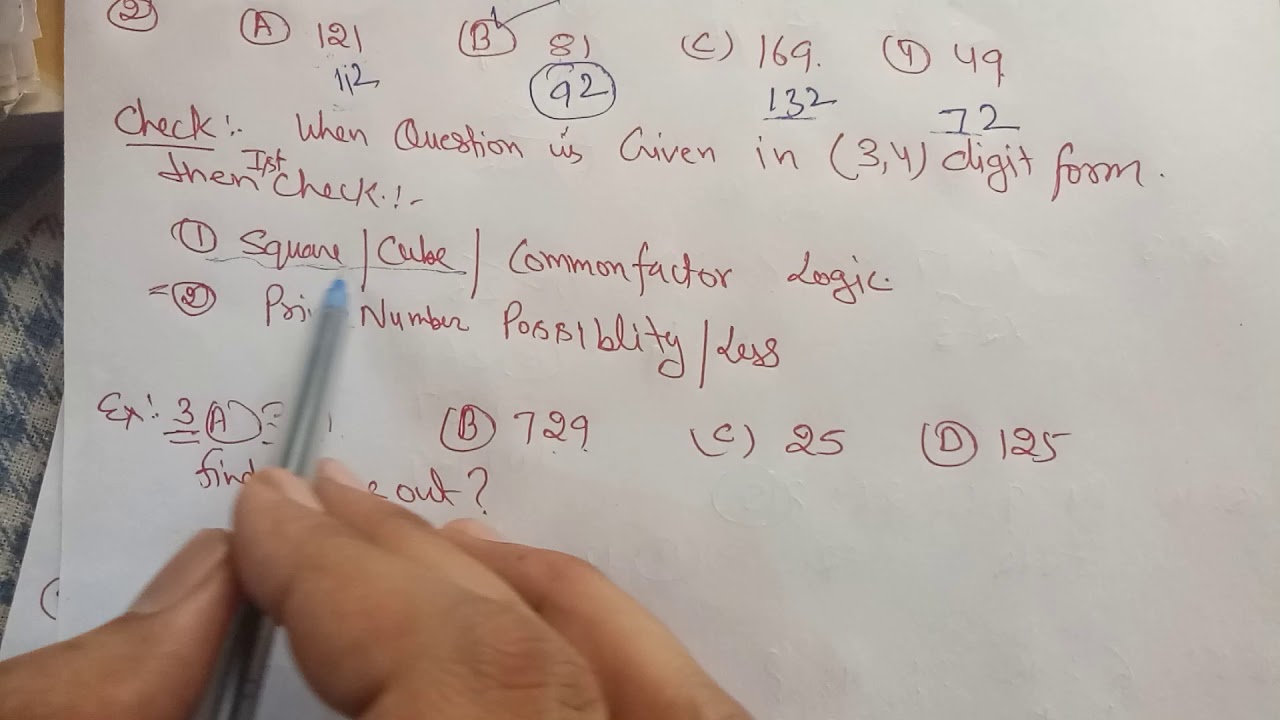 ② Ⓐ 121 Ⓑ 81 (C) 169. 49
11² 9² 13² 7²
Check:- When Question is Given in (3,4) digit form.
then Ist Check:-
① Square / Cube / Common factor Logic.
② Number Possiblity / Less
Ex: 3 Ⓐ Ⓑ 729 (C) 25 Ⓓ 125
out?